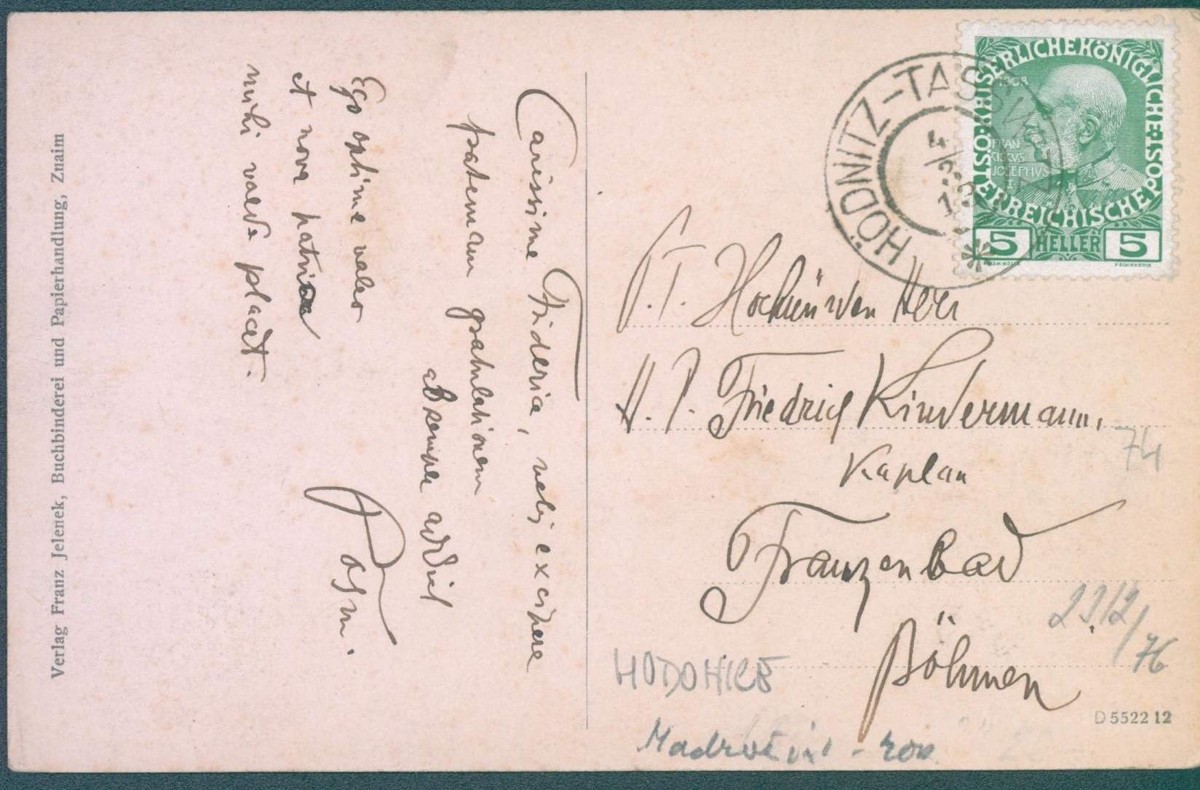 Verlag Franz Jelenek, Buchbinderei und Papierhandlung, Znaim
Carissime Friderice, velis excipere
gratulationem
semper
Ego optime valeo
et nova patria
mihi valde placet.
HÖDNITZ-TASSW
4
KAISERLICHE KÖNIGLICHE ÖSTERREICHISCHE POST
1908
FRAN
CISCVS
IOSEPHVS
I
5 HELLER 5
P.T. Hochwürden Herr
H. P. Friedrich Kindermann,
Kaplan
Franzenbad
Böhmen
74
2312/76
HODONICE
D 5522 12